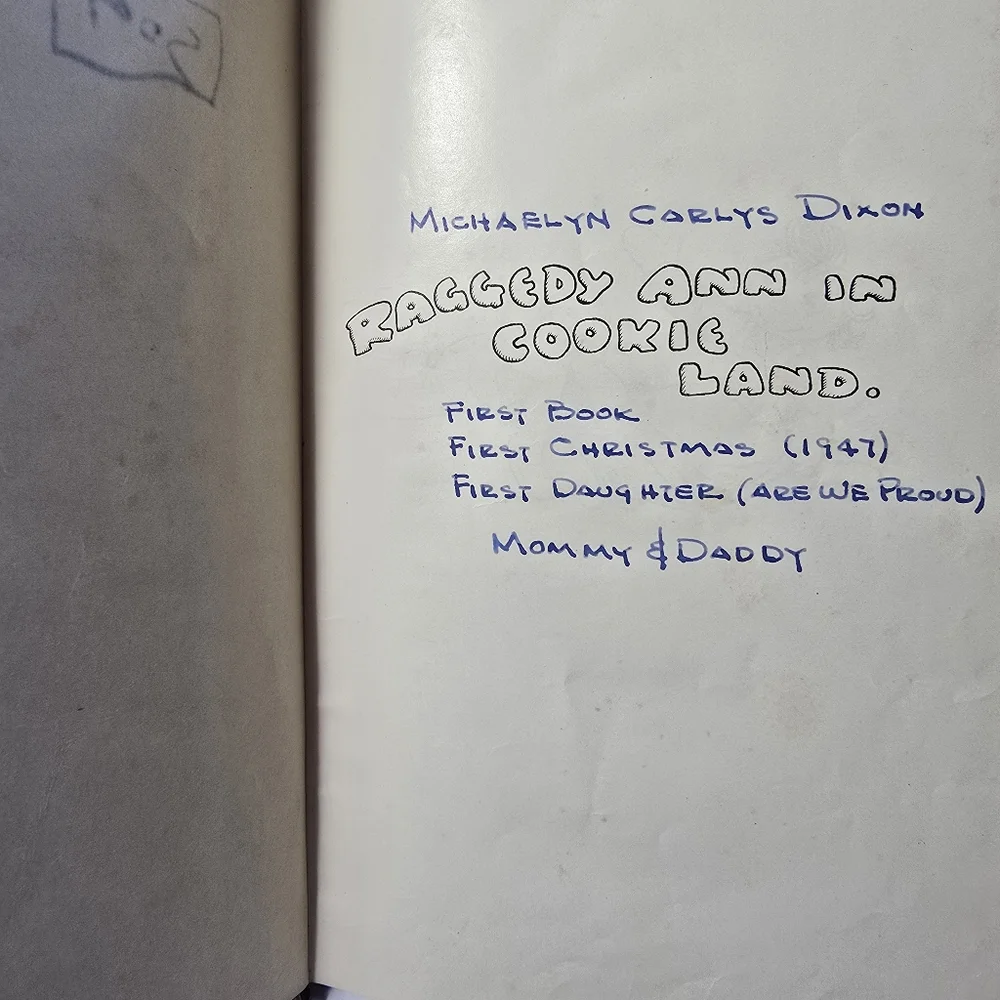 MICHAELYN CARLYS DIXON
RAGGEDY ANN IN
COOKIE
LAND.
FIRST BOOK
FIRST CHRISTMAS (1947)
FIRST DAUGHTER (ARE WE PROUD)
MOMMY & DADDY